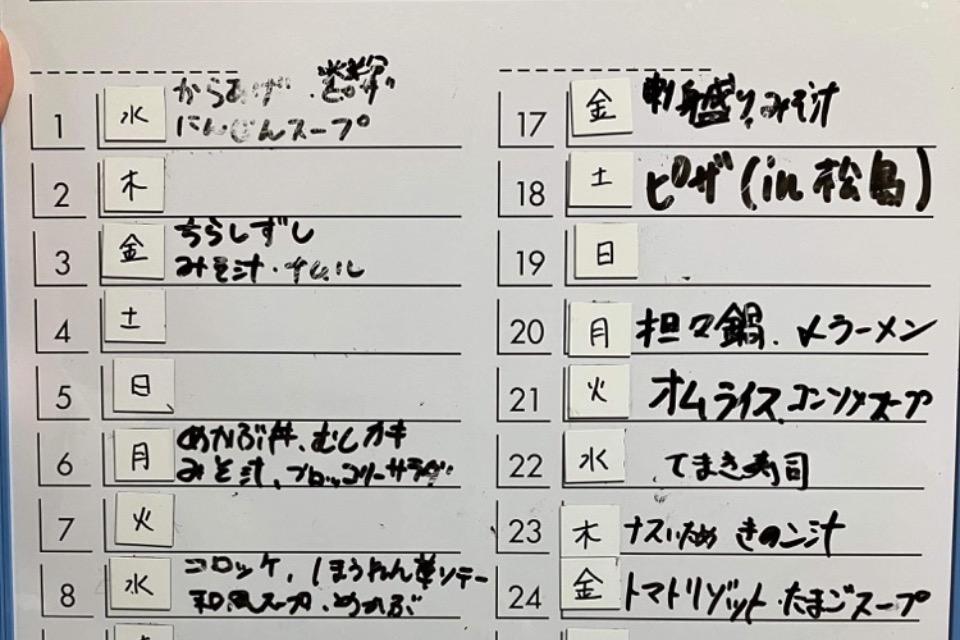 1 水 からあげ
にんじんスープ
2 木
3 金 ちらしずし
みそ汁・ナムル
4 土
5 日
6 月 めかぶ丼、むしカキ
みそ汁、ブロッコリーサラダ
7 火
8 水 コロッケ、ほうれん草ソテー
和風スープ・めかぶ
17 金 刺身盛り、みそ汁
18 土 ピザ(in 松島)
19 日
20 月 担々鍋、〆ラーメン
21 火 オムライス、コンソメスープ
22 水 てまき寿司
23 木 ナスいため きのこ汁
24 金 トマトリゾット・たまごスープ